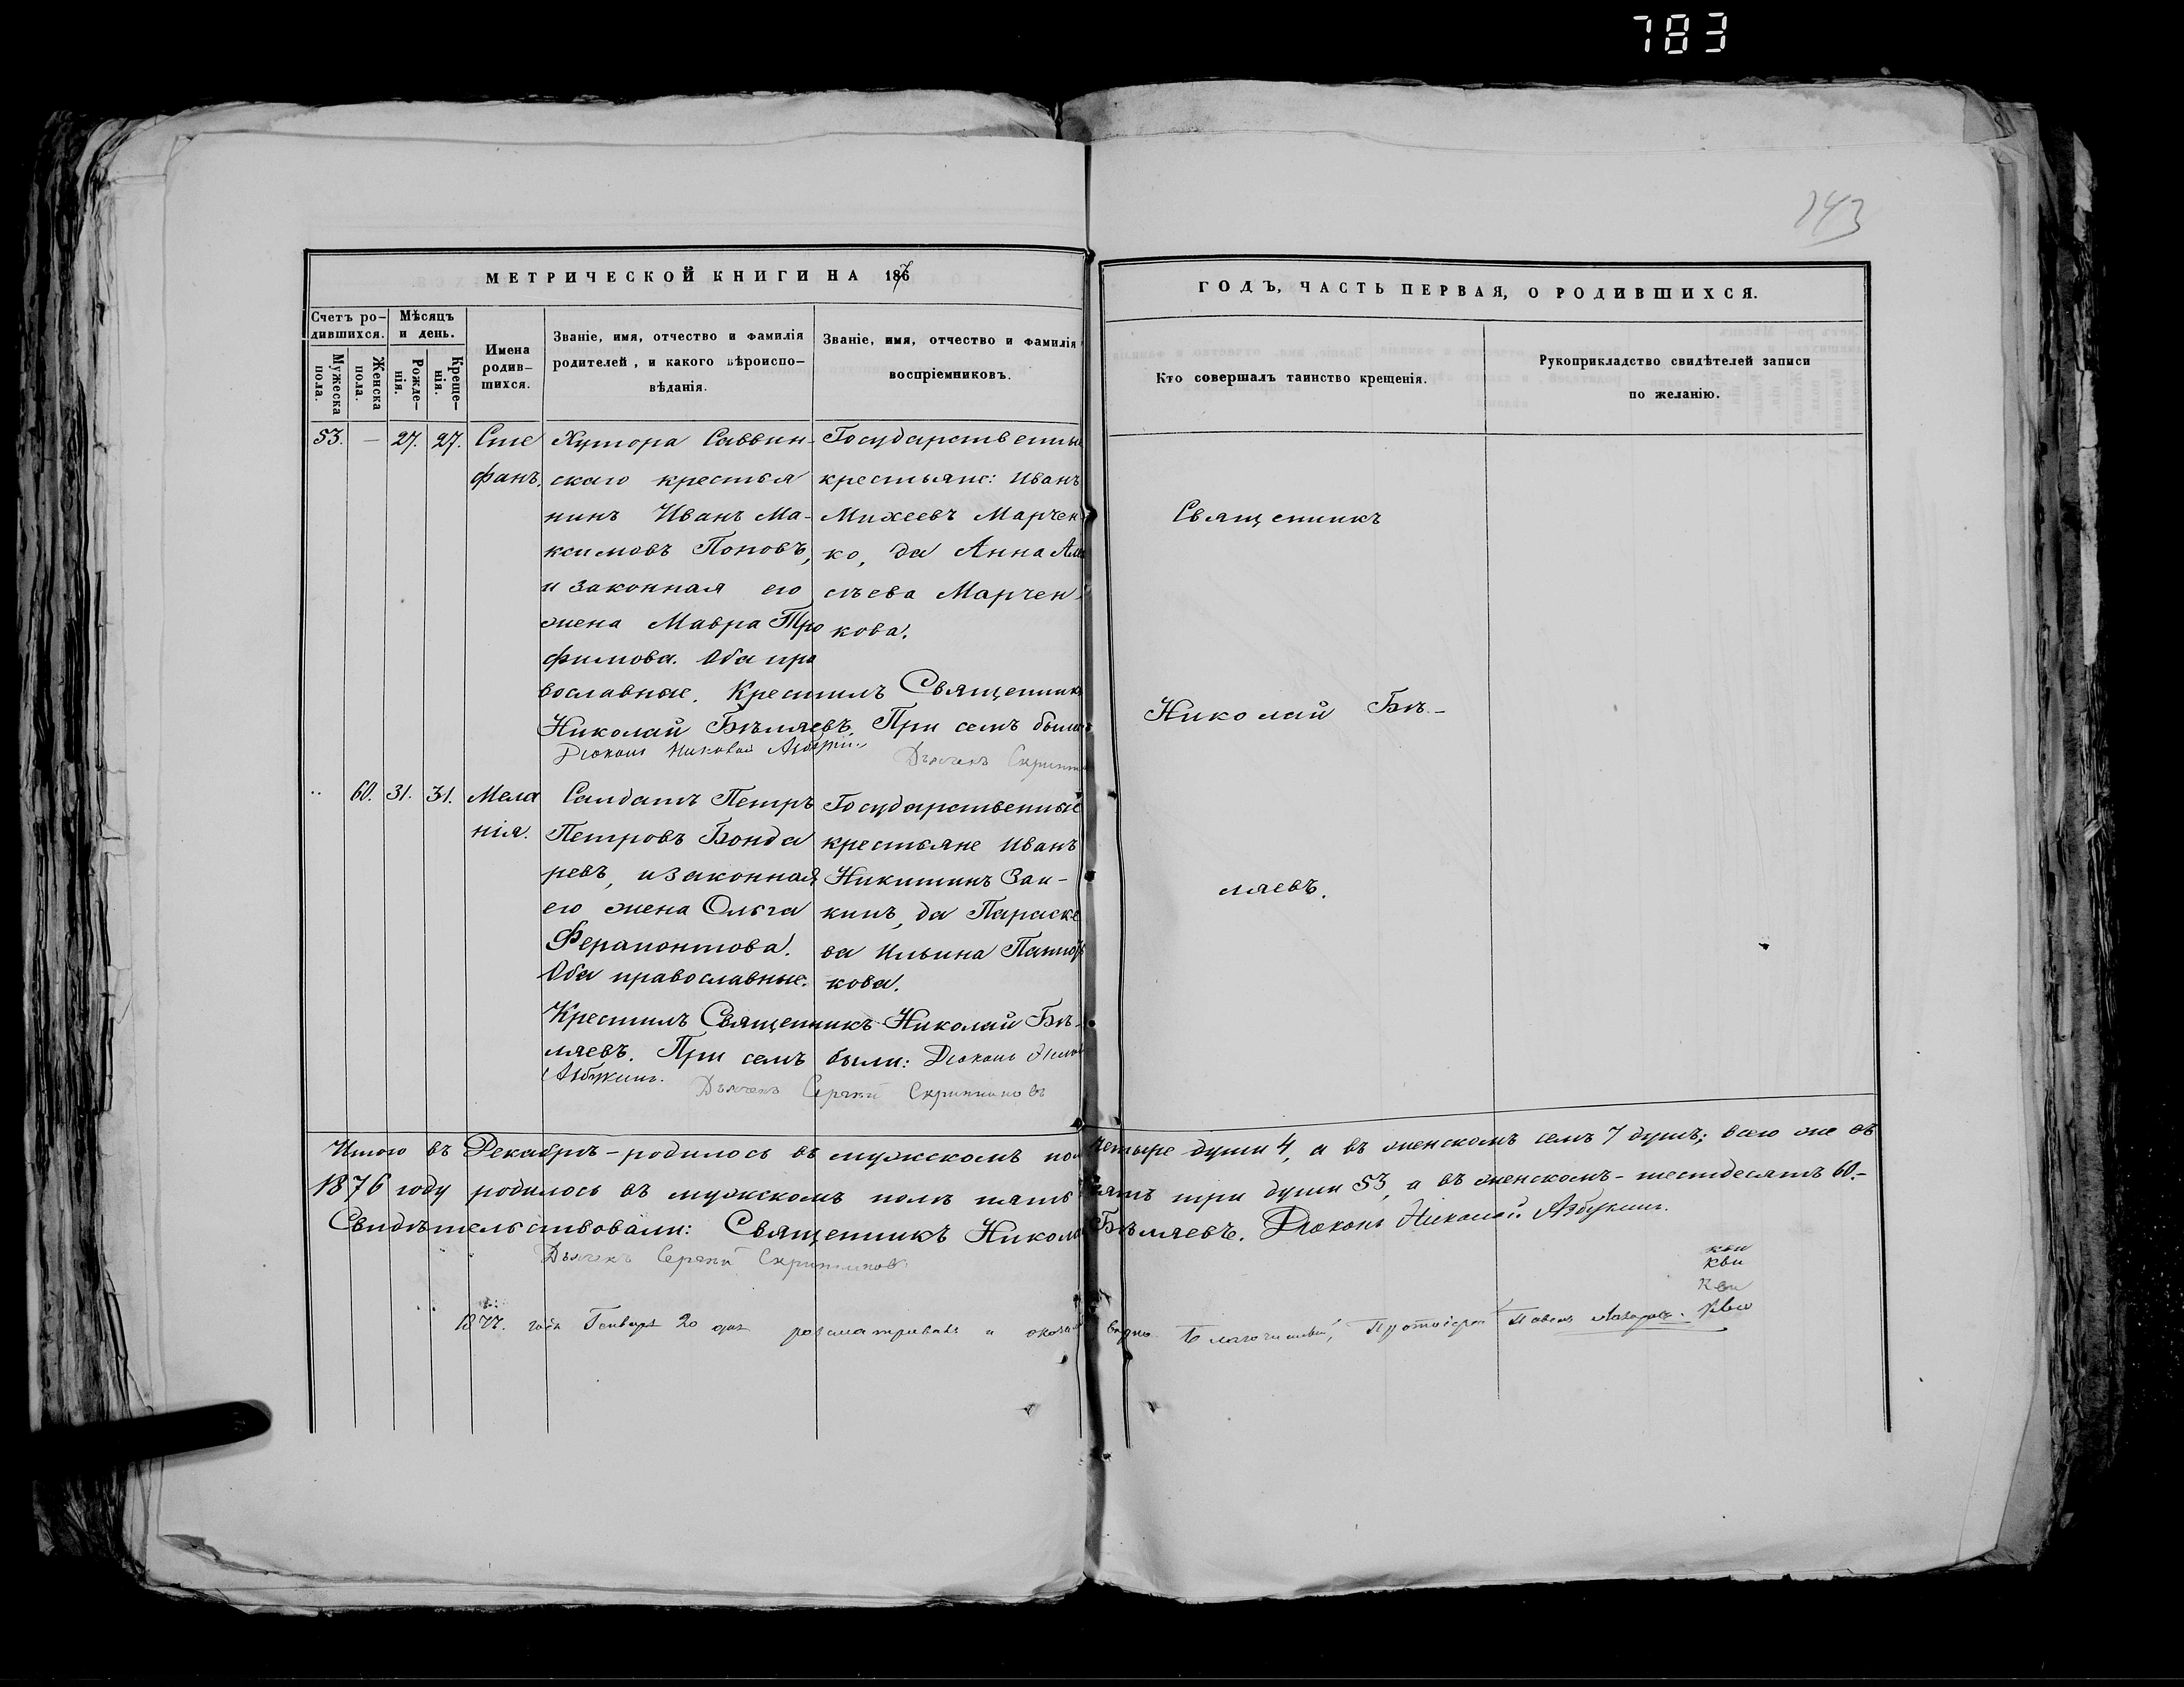 783
143
МЕТРИЧЕСКОЙ КНИГИ НА 1876
ГОДЪ, ЧАСТЬ ПЕРВАЯ, О РОДИВШИХСЯ.
Счетъ ро-
дившихся.
Мужеска
пола.
Женска
пола.
Мѣсяцъ
и день.
Рожде-
нія.
Креще-
нія.
Имена
родив-
шихся.
Званіе, имя, отчество и фамилія
родителей, и какого вѣроиспо-
вѣданія.
Званіе, имя, отчество и фамилія
воспріемниковъ.
Кто совершалъ таинство крещенія.
Рукоприкладство свидѣтелей записи
по желанію.
53. — 27. 27.
Сте
фанъ.
Хутора Саввин-
скаго крестья
нинъ Иванъ Ма-
ксимовъ Поповъ,
и законная его
жена Мавра Тро
фимова. Оба пра
вославные. Крестилъ Священникъ
Николай Бѣляевъ. При семъ были
Діаконъ Николай
Дьячекъ
Государственные
крестьяне: Иванъ
Михеевъ Марчен-
ко, да Анна
Марчен-
кова.
60. 31. 31.
Мела
нія.
Салдатъ Петръ
Петровъ Бонда
ревъ, и законная
его жена Ольга
Ферапонтова.
Оба православные.
Государственные
крестьяне Иванъ
Никитинъ Заи-
кинъ, да Параске
ва Ильина
кова.
Крестилъ Священникъ Николай Бѣ-
ляевъ. При семъ были: Діаконъ
Азбукинъ.
Дьячекъ Сергѣй Скрипниковъ
Священникъ
Николай Бѣ-
ляевъ.
Итого въ Декабрѣ - родилось въ мужскомъ полѣ четыре души 4, а въ женскомъ семъ 7 душъ; всего же въ
1876 году родилось въ мужскомъ полѣ пять десятъ три души 53, а въ женскомъ - шестдесятъ 60.-
Свидѣтельствовали: Священникъ Николай Бѣляевъ. Діаконъ Николай Азбукинъ.
Дьячекъ Сергѣй Скрипниковъ
1877. года Генваря 20 дня разсматривалъ Благочинный, Протоіерей Павелъ